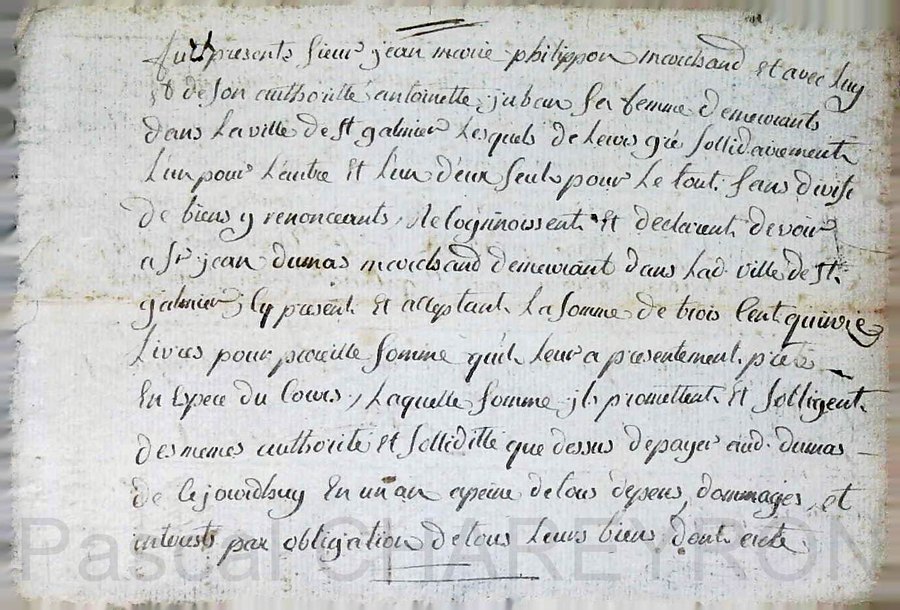 furt presents sieur jean marie philippon marchand et avec luy
et de son authoritté antoinette juban sa femme demeurants
dans la ville de st galmier lesquels de leurs gré sollidairement
l'un pour l'autre et l'un d'eux seul pour le tout sans divise
de biens y renonceants, recognoissent et declarent devoir
a sr jean dumas marchand demeurant dans lad ville de st
galmier, jcy present et acceptant la somme de trois cent quinze
livres pour pareille somme qu'il leur a presentement preté
en espece du cours, laquelle somme jls promettent et sobligent
des memes authorité et solliditté que dessus de payer aud. dumas
de ce jourdhuy en un an a peine de tous depens, dommages, et
interests par obligation de tous leurs biens, dont acte
Pascal CHAREYRON